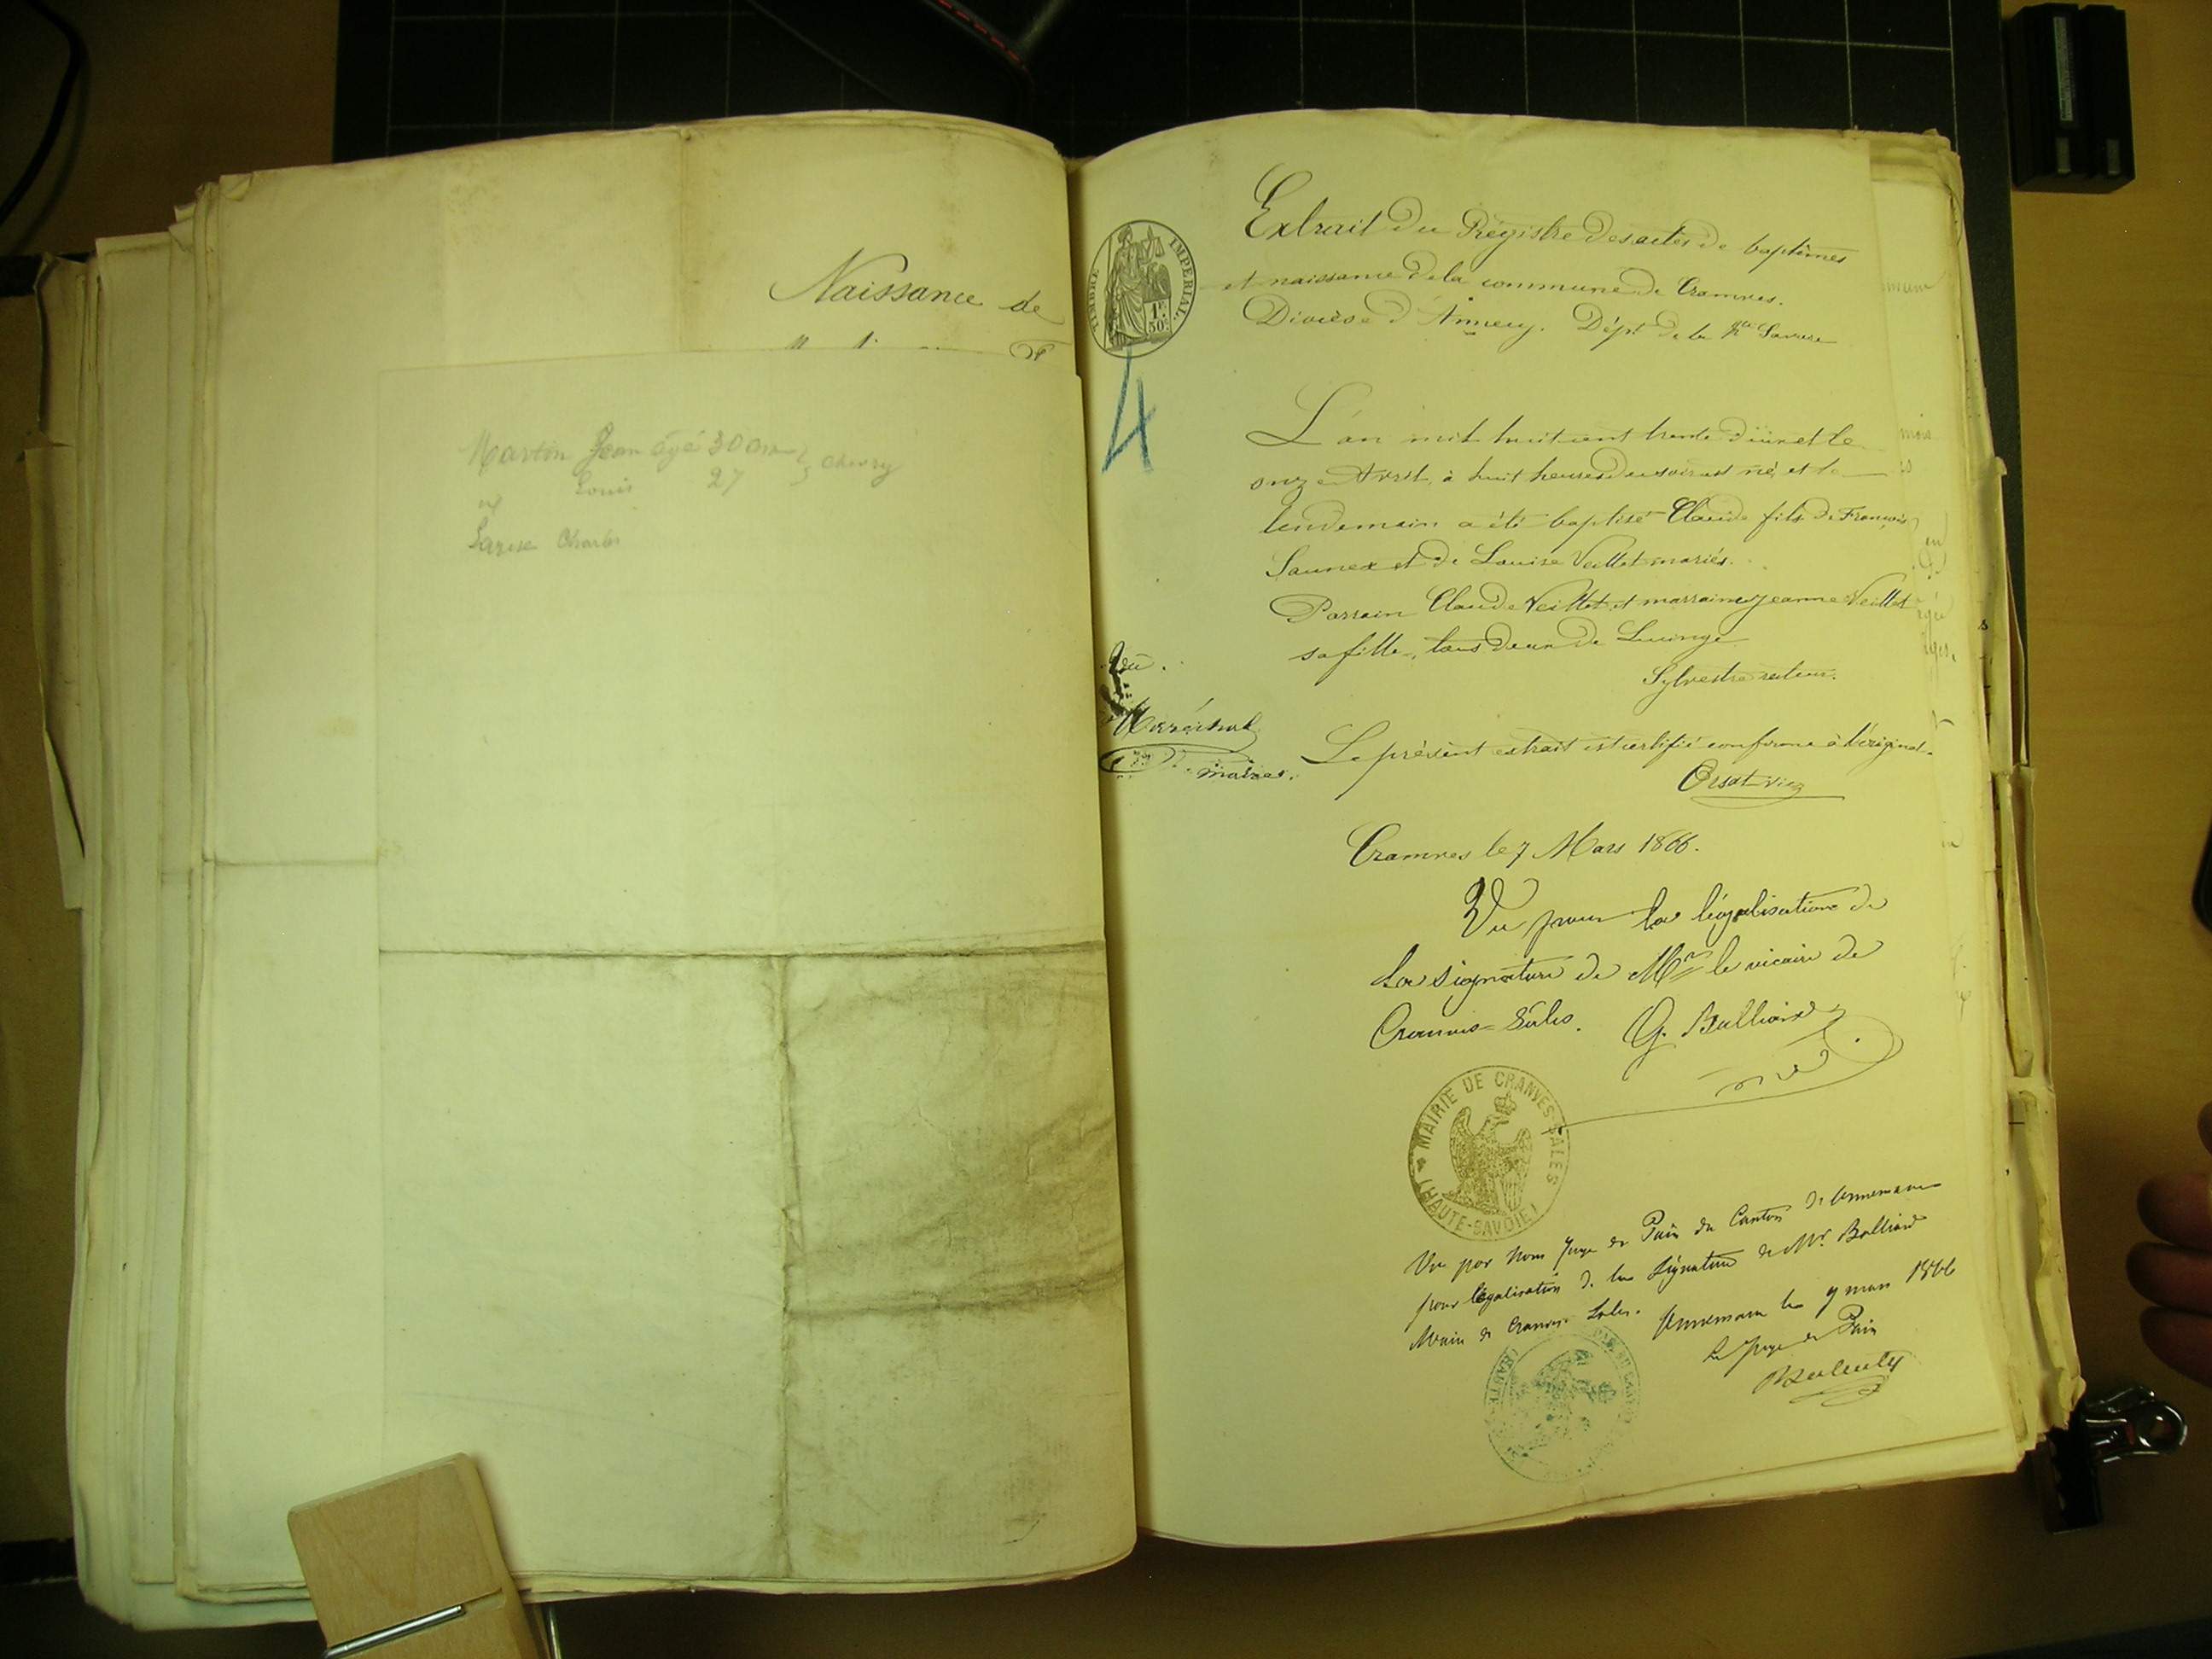 Naissance de
Martin Jean âgé 30 ans
Louis 27
Charles
TIMBRE IMPERIAL
1F.
50c
4
Extrait du Régistre des actes de baptêmes
et naissance de la commune de Cranves.
Diocèse d'Annecy. Dépt de la Hte Savoie
L'an mil huit cent trente d'un et le
onze Avril, à huit heures du soir est né, et le
lendemain a été baptisé Claude fils de François
Saunex et de Louise Veillet mariés.
Parrain Claude Veillet et marraine Jeanne Veillet
sa fille, tous deux de Lucinge
Sylvestre recteur.
Vu.
Maréchal
maire.
Le présent extrait est certifié conforme à l'original.
Orsat vic
Cranves le 7 Mars 1866.
Vu pour la légalisation de
la signature de Mr le vicaire de
Cranves-Sales. G. Balliard
MAIRIE DE CRANVES-SALES
(HAUTE-SAVOIE)
Vu par Nous Juge de Paix du Canton de Annemasse
pour légalisation de la Signature de Mr. Balliard
Maire de Cranves-Sales. Annemasse le 9 mars 1866
Le Juge de Paix